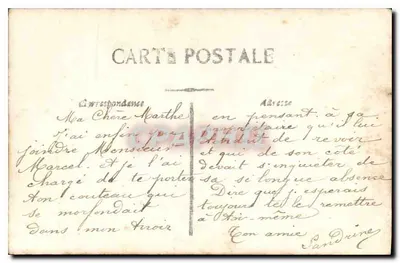 CARTE POSTALE
Correspondance
Adresse
Ma Chère Marthe
J'ai enfin
joindre Monsieur
Marcel. Et je l'ai
chargé de te porter
ton couteau qui
se morfondait
dans mon tiroir
en pensant à sa
propriétaire qu'il lui
tardait de revoir
et qui de son côté
devait s'inquiéter de
sa si longue absence
Dire que j'espérais
toujours te le remettre
à toi-même.
Ton amie
Sandrine